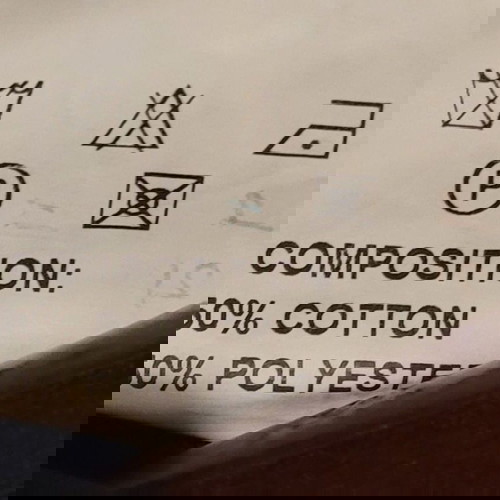 P
COMPOSITION:
0% COTTON
0% POLYESTE